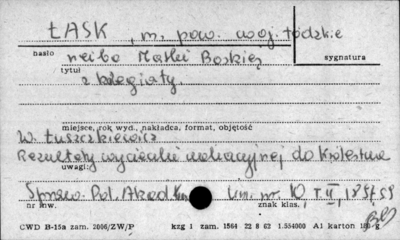 ŁASK, m. pow. woj. łódzkie
hasło
sygnatura
rzeźba Matki Boskiej
tytuł
z kolegiaty
miejsce, rok wyd., nakładca, format, objętość
W. Łuszczkiewicz
Rezultaty wycieczki wakacyjnej do Królestwa
uwagi:
Spraw. Pol. Akad. Um. nr 10 T II, 1891
nr inw.
znak klas.
CWD B-15a zam. 2006/ZW/P kzg 1 zam. 1564 22 8 62 1.554000 A1 karton